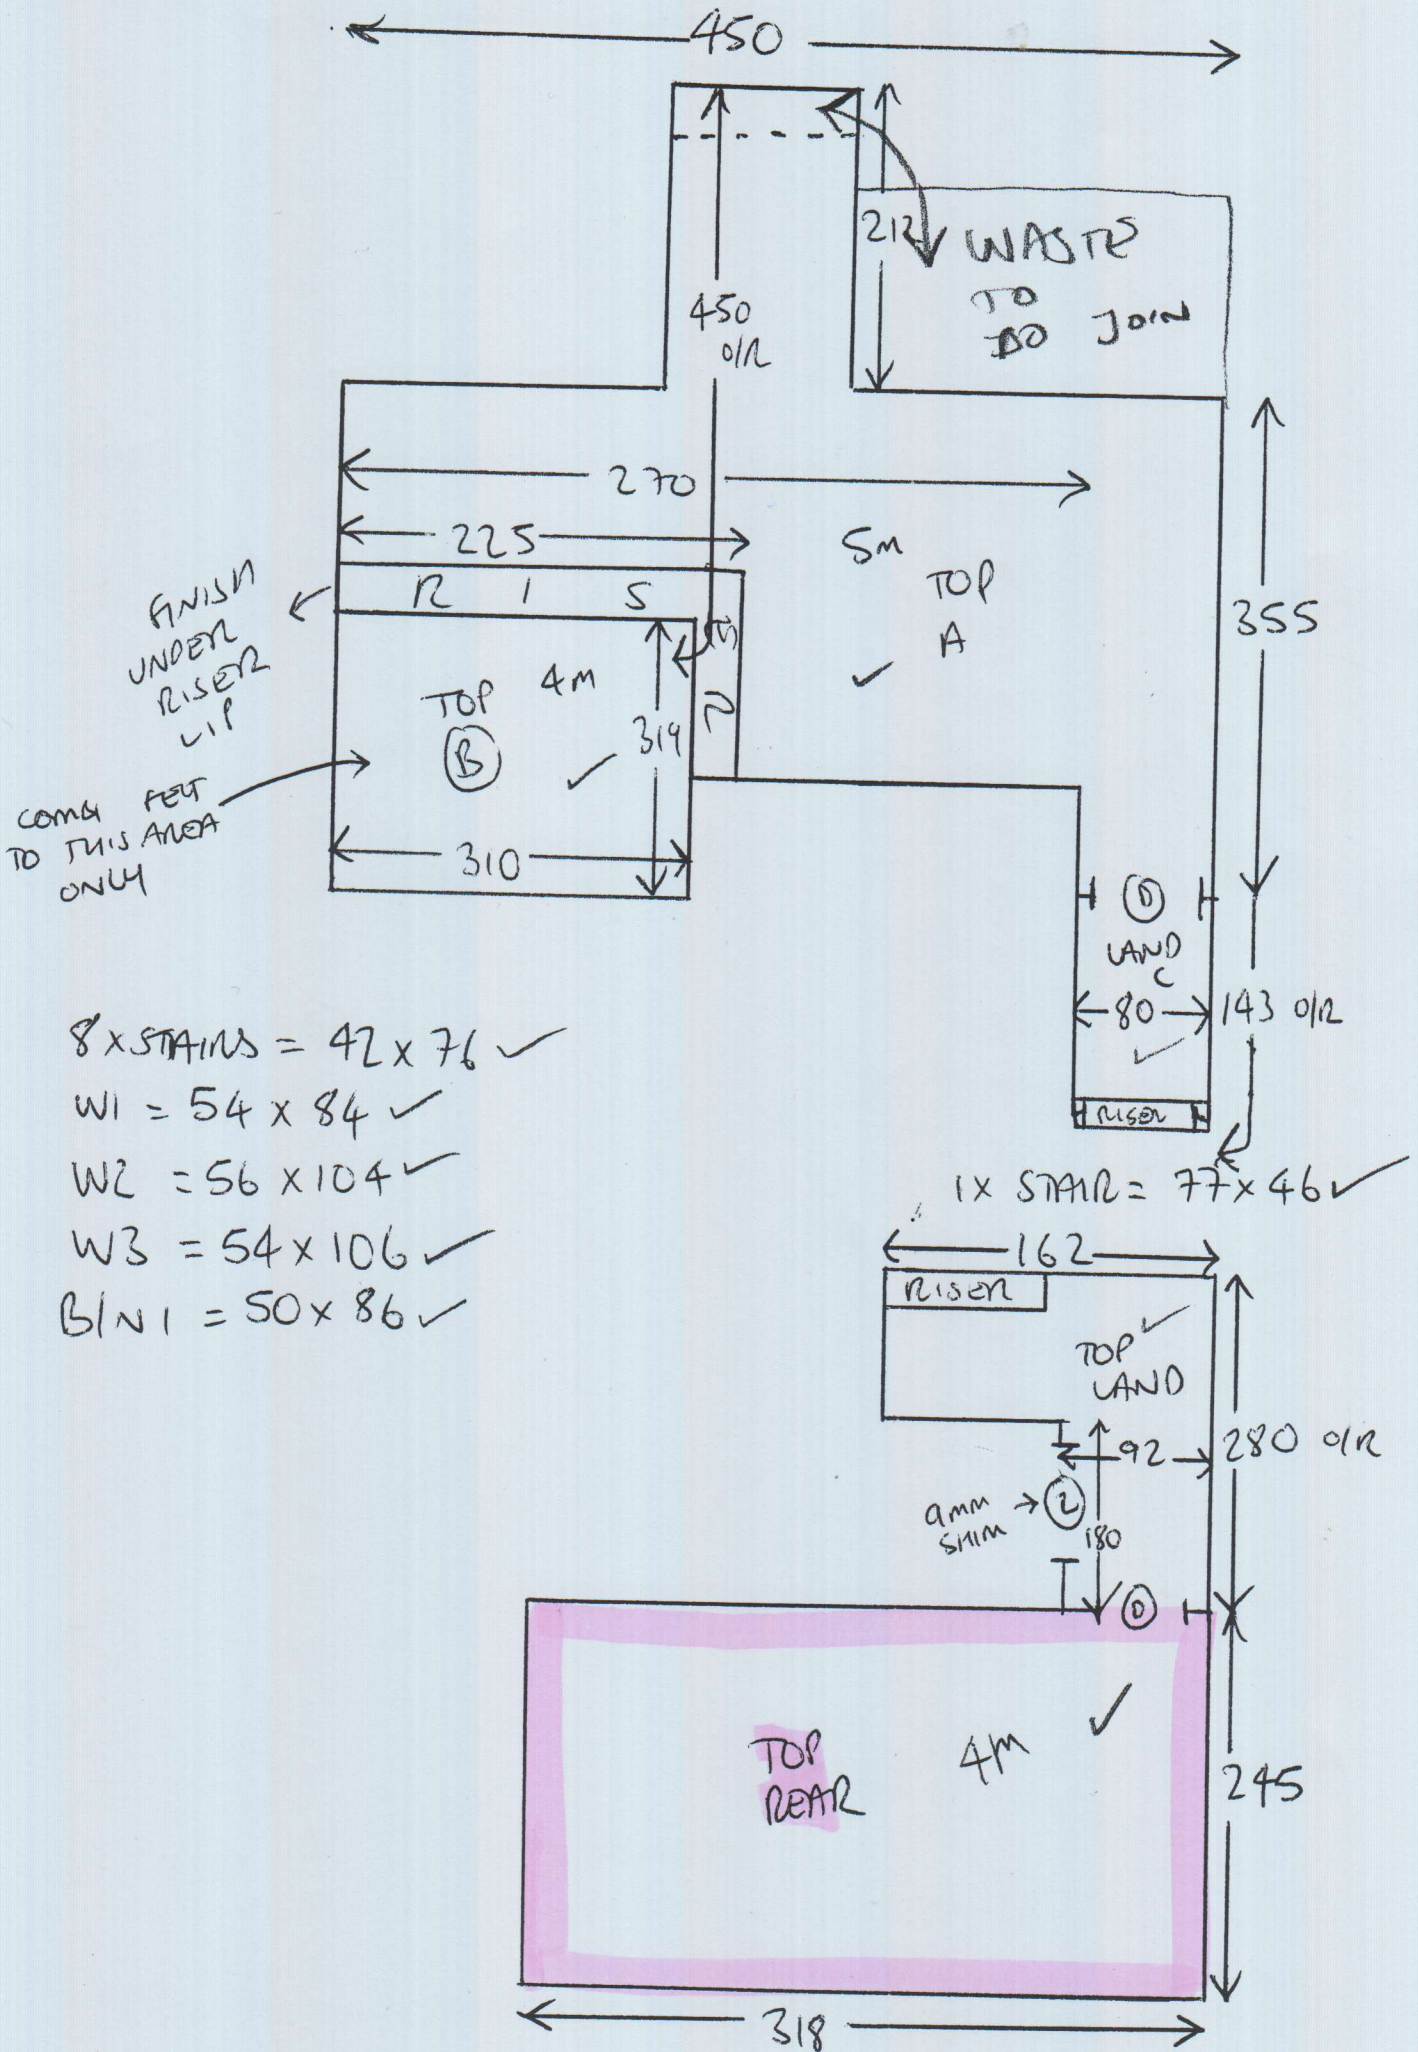 450
212
WASTE
TO
DO JOIN
450
O/R
270
225
5M
TOP
A
355
FINISH
UNDER
RISER
LIP
R I S
E
R
TOP 4M
B
319
310
COMBI FELT
TO THIS AREA
ONLY
D
LAND
C
80
143 O/R
RISER
8 X STAIRS = 42 X 76
W1 = 54 X 84
W2 = 56 X 104
W3 = 54 X 106
B/N 1 = 50 X 86
1 X STAIR = 77 X 46
162
RISER
TOP
LAND
92
280 O/R
9MM
SHIM
2
180
D
TOP
REAR
4M
245
318